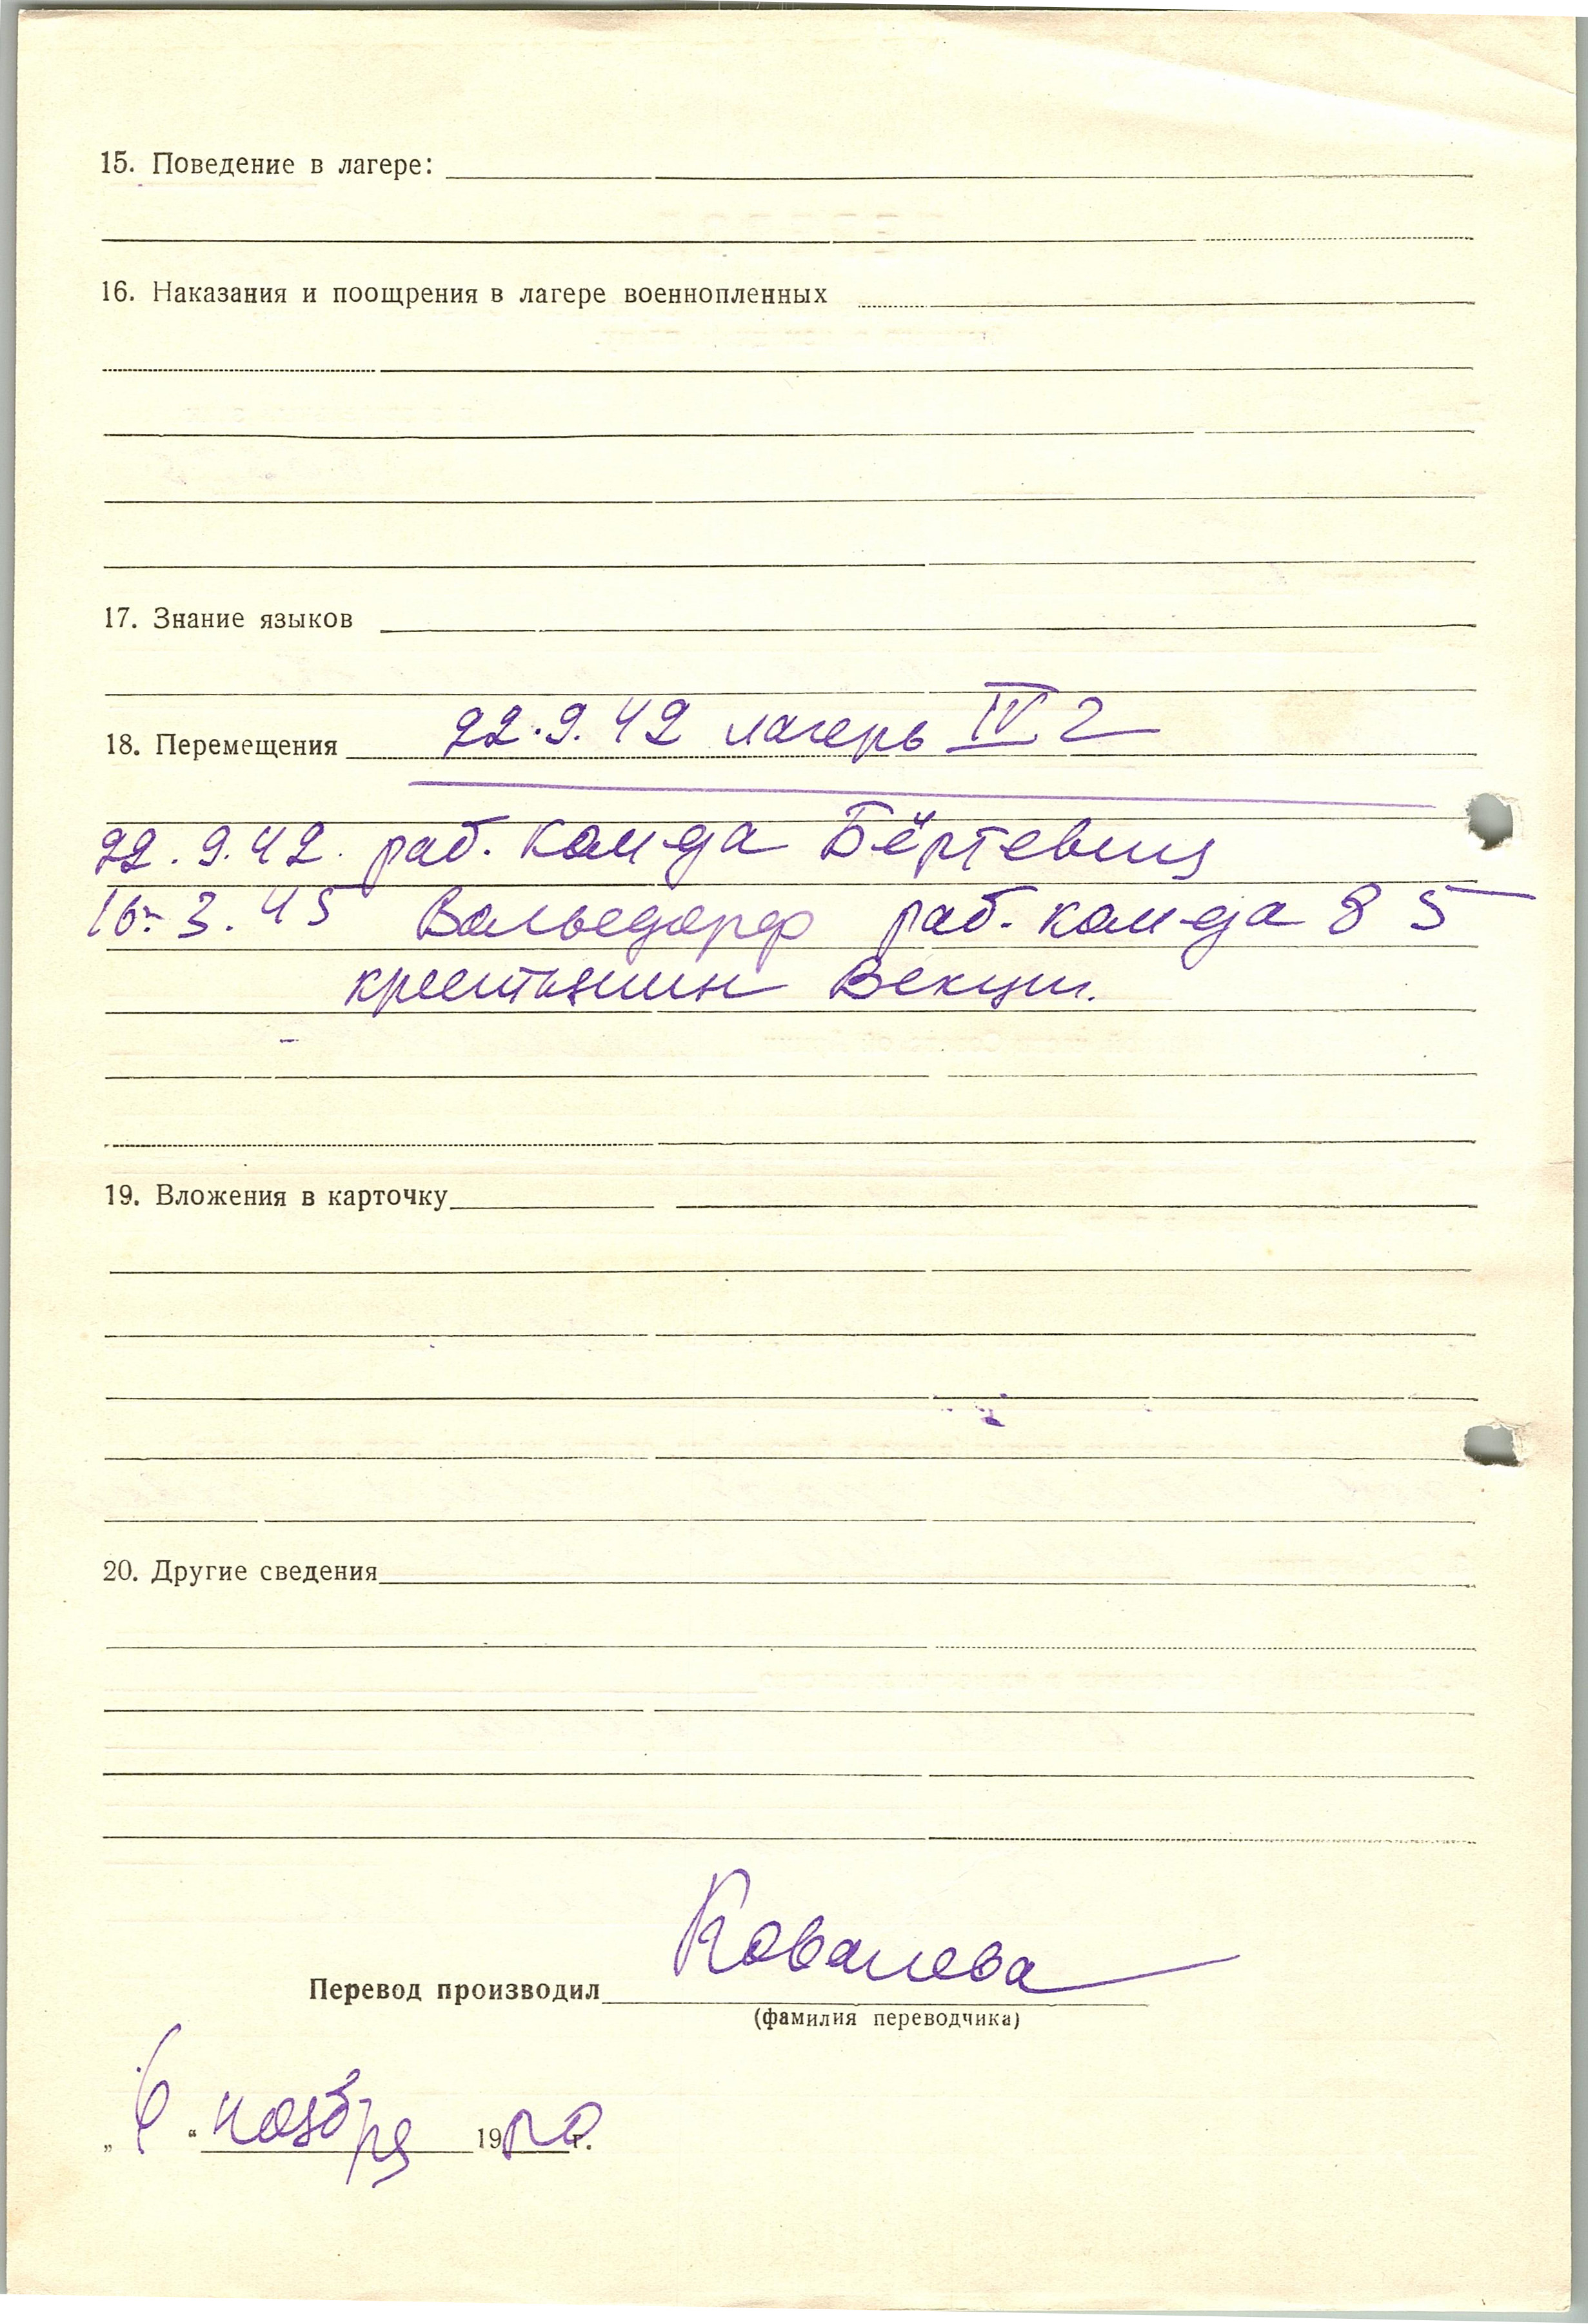 15. Поведение в лагере:
16. Наказания и поощрения в лагере военнопленных
17. Знание языков
18. Перемещения 22.9.42 лагерь IV 2
22.9.42. раб. кам-да Бёртевиц
16.3.45 Вальедорф раб. кам-да 85
крестьянин Векции.
19. Вложения в карточку
20. Другие сведения
Перевод производил Ковалева
(фамилия переводчика)
„6“ ноября 19 г.